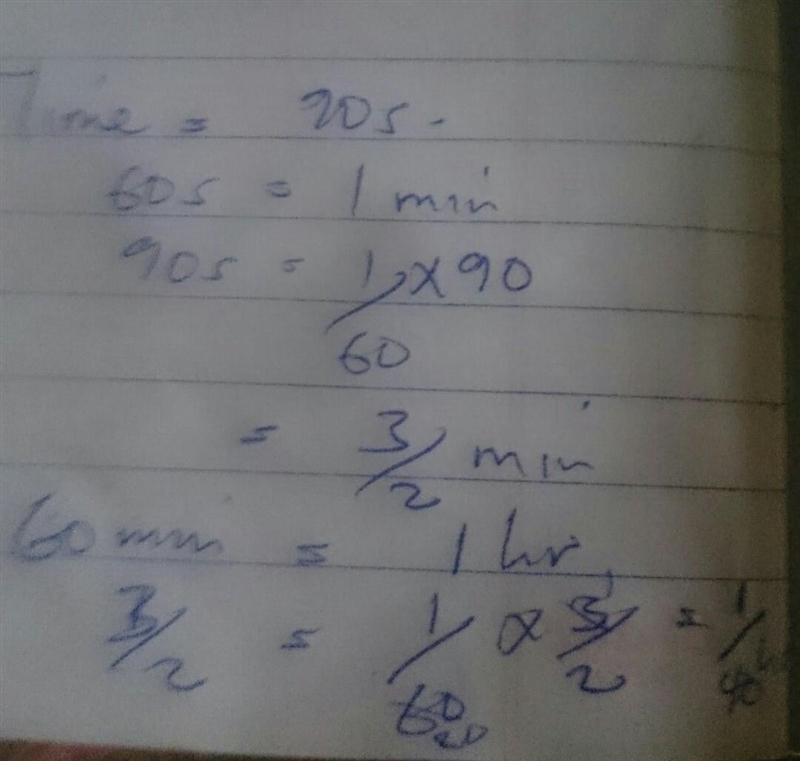 Time = 90s.
60s = 1 min
90s = 1/60 x 90
= 3/2 min
60 min = 1 hr
3/2 = 1/60 20 x 3/2 1 = 1/40 hr